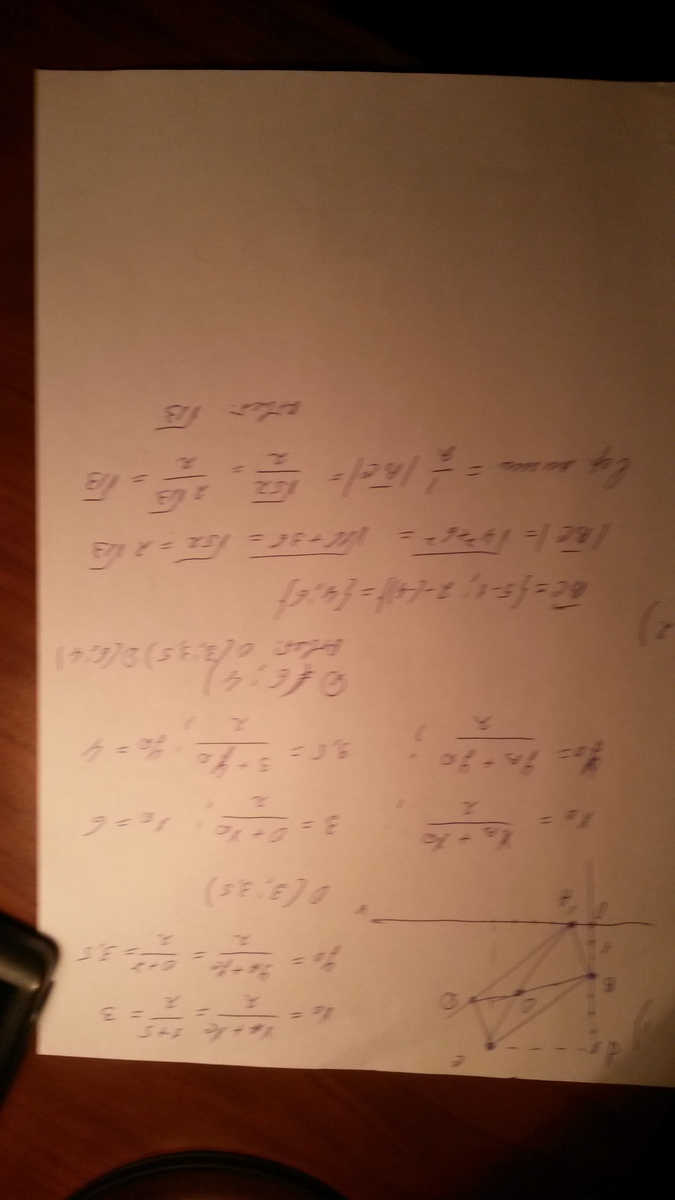 1)
y
C
B
D
O
A
x
x₀ = (x_A + x_C)/2 = (1+5)/2 = 3
y₀ = (y_A + y_C)/2 = (0+7)/2 = 3,5
O(3; 3,5)
x₀ = (x_B + x_D)/2 ; 3 = (0 + x_D)/2 ; x_D = 6
y₀ = (y_B + y_D)/2 ; 3,5 = (3 + y_D)/2 ; y_D = 4
D(6; 4)
Ответ: O(3; 3,5) D(6; 4)
2)
BC = {5-1; 2-(-4)} = {4; 6}
|BC| = √(4²+6²) = √(16+36) = √52 = 2√13
= 1/2 |BC| = √52/2 = 2√13/2 = √13
Ответ: √13